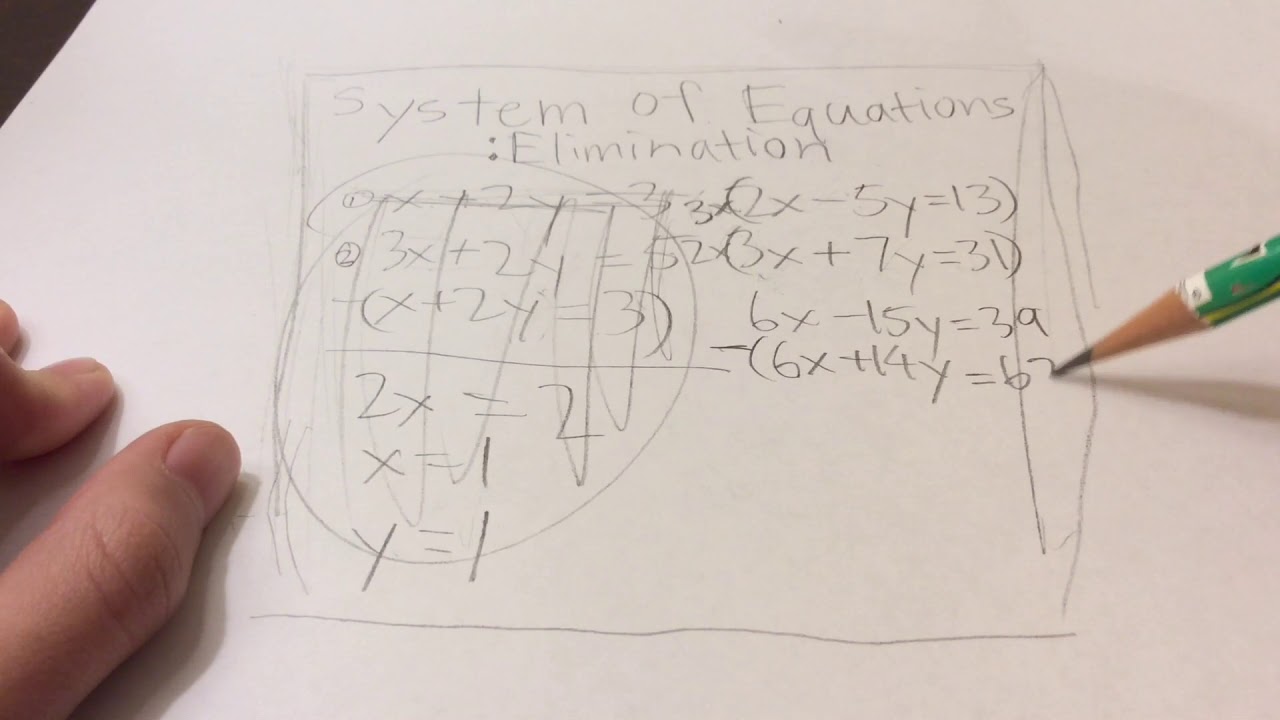 System of Equations
:Elimination
① x + 2y = 3
② 3x + 2y = 5
-(x + 2y = 3)
2x = 2
x = 1
y = 1
3x(2x - 5y = 13)
2x(3x + 7y = 31)
6x - 15y = 39
-(6x + 14y = 62